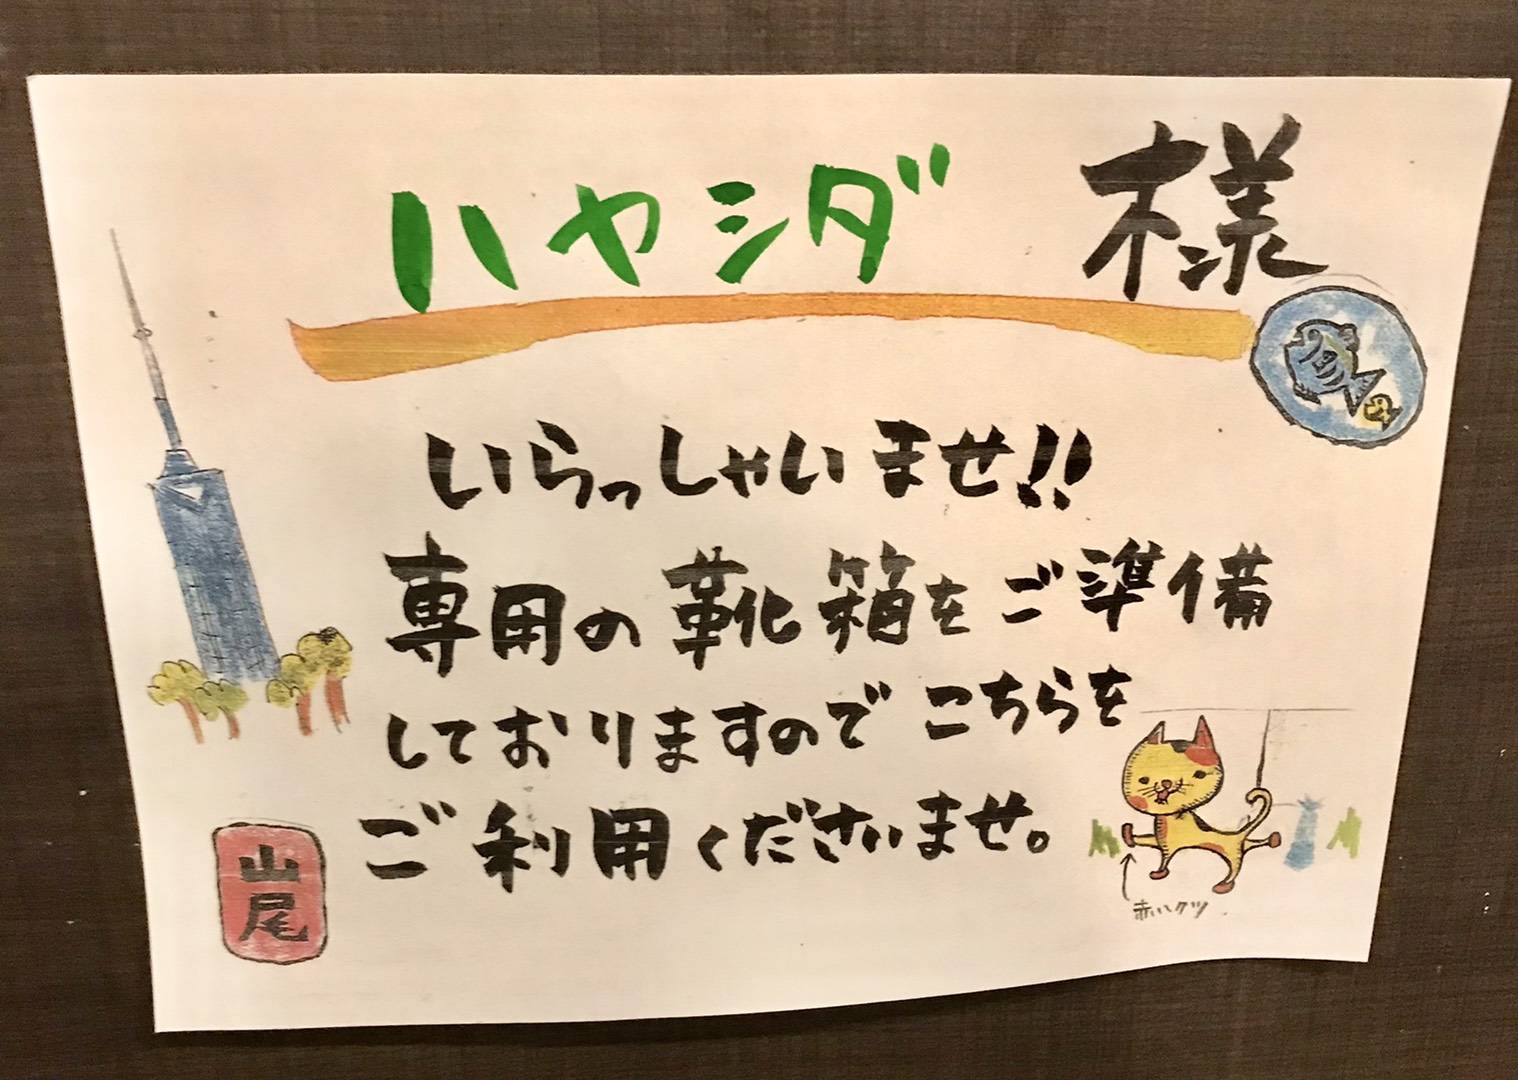 ハヤシダ 様
いらっしゃいませ!!
専用の靴箱をご準備
しておりますのでこちらを
ご利用くださいませ。
赤いクツ
山尾